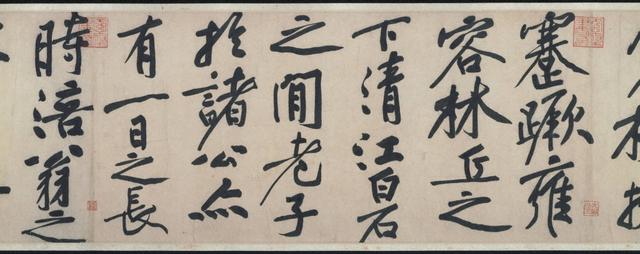 蹇蹶雍
容林丘之
下清江白石
之閒老子
於諸公亦
有一日之長
時涪翁之